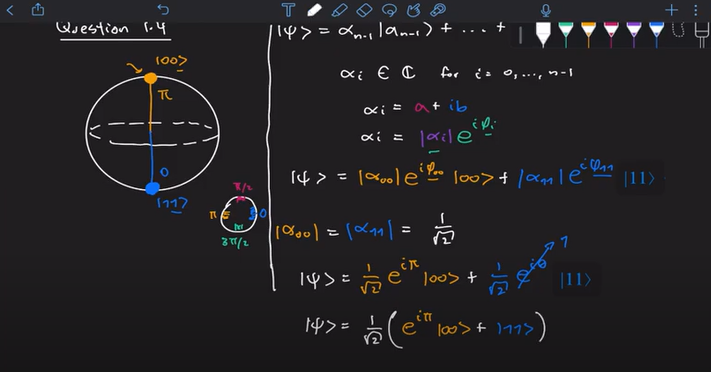 Question 1.4
|00>
π
0
|11>
π/2
π
0
3π/2
|ψ> = αn-1 |an-1> + ... +
αi ∈ ℂ for i = 0, ..., n-1
αi = a + ib
αi = |αi| e^iφi
|ψ> = |α00| e^iφ00 |00> + |α11| e^iφ11 |11⟩
|α00| = |α11| = 1/√2
|ψ> = 1/√2 e^iπ |00> + 1/√2 e^i0 |11⟩
1
|ψ> = 1/√2 ( e^iπ |00> + |11> )